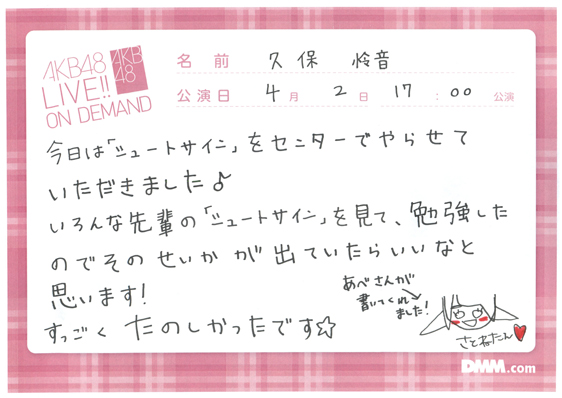 AKB48
LIVE!!
ON DEMAND
AKB
48
名前 久保 怜音
公演日 4月 2日 17:00 公演
今日は「シュートサイン」をセンターでやらせて
いただきました♪
いろんな先輩の「シュートサイン」を見て、勉強した
のでそのせいか が出ていたらいいなと
思います!
すっごく たのしかったです☆
あべさんが
書いてくれ
ました!
さとねたん
DMM.com